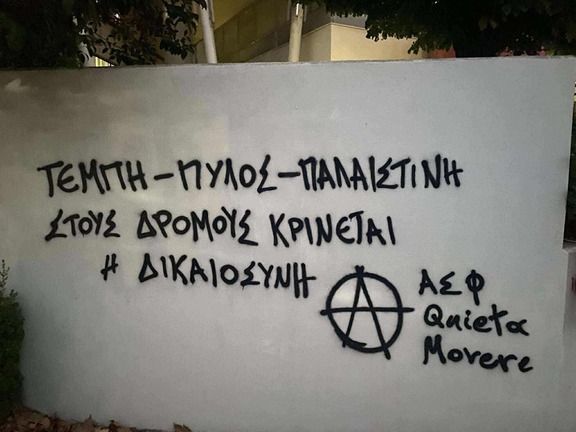 ΤΕΜΠΗ – ΠΥΛΟΣ – ΠΑΛΑΙΣΤΙΝΗ
ΣΤΟΥΣ ΔΡΟΜΟΥΣ ΚΡΙΝΕΤΑΙ
Η ΔΙΚΑΙΟΣΥΝΗ
ΑΣΦ
Quieta
Movere